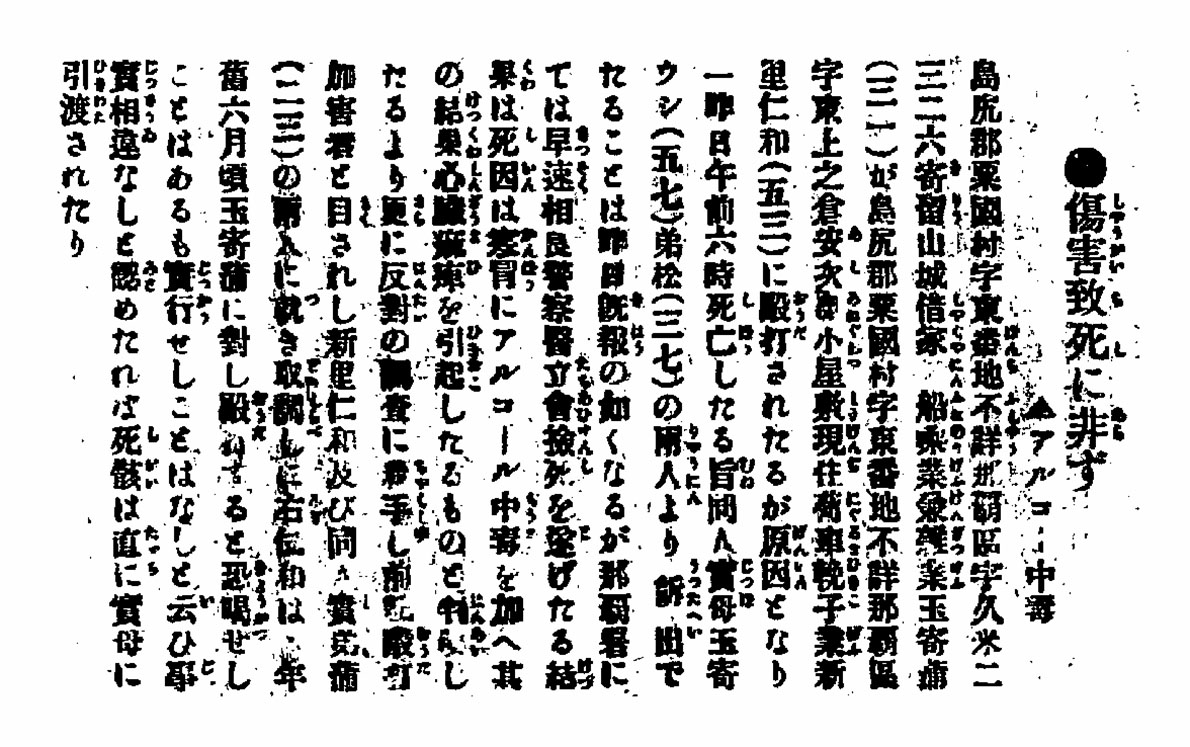 ●傷害致死に非ず
▲アルコール中毒
島尻郡粟國村字東番地不詳那覇區字久米二
三二六寄留山城借家 船乘業兼雜業玉寄蒲
(三一)が島尻郡粟國村字東番地不詳那覇區
字東上之倉安次嶺小屋敷現住荷車輓子業新
里仁和(五三)に毆打されたるが原因となり
一昨日午前六時死亡したる旨同人實母玉寄
ウシ(五七)弟松(二七)の兩人より 訴出で
たることは昨日既報の如くなるが那覇署に
ては早速相良警察醫立會撿死を遂げたる結
果は死因は寒冒にアルコール中毒を加へ其
の結果心臟痲痺を引起したるものと判明し
たるより更に反對の調査に着手し前記毆打
加害者と目されし新里仁和及び同人實兄蒲
の兩人に就き取調しに右仁和は 年
舊六月頃玉寄蒲に對し毆打すると恐喝せし
ことはあるも實行せしことはなしと云ひ事
實相違なしと認めたれば死骸は直に實母に
引渡されたり